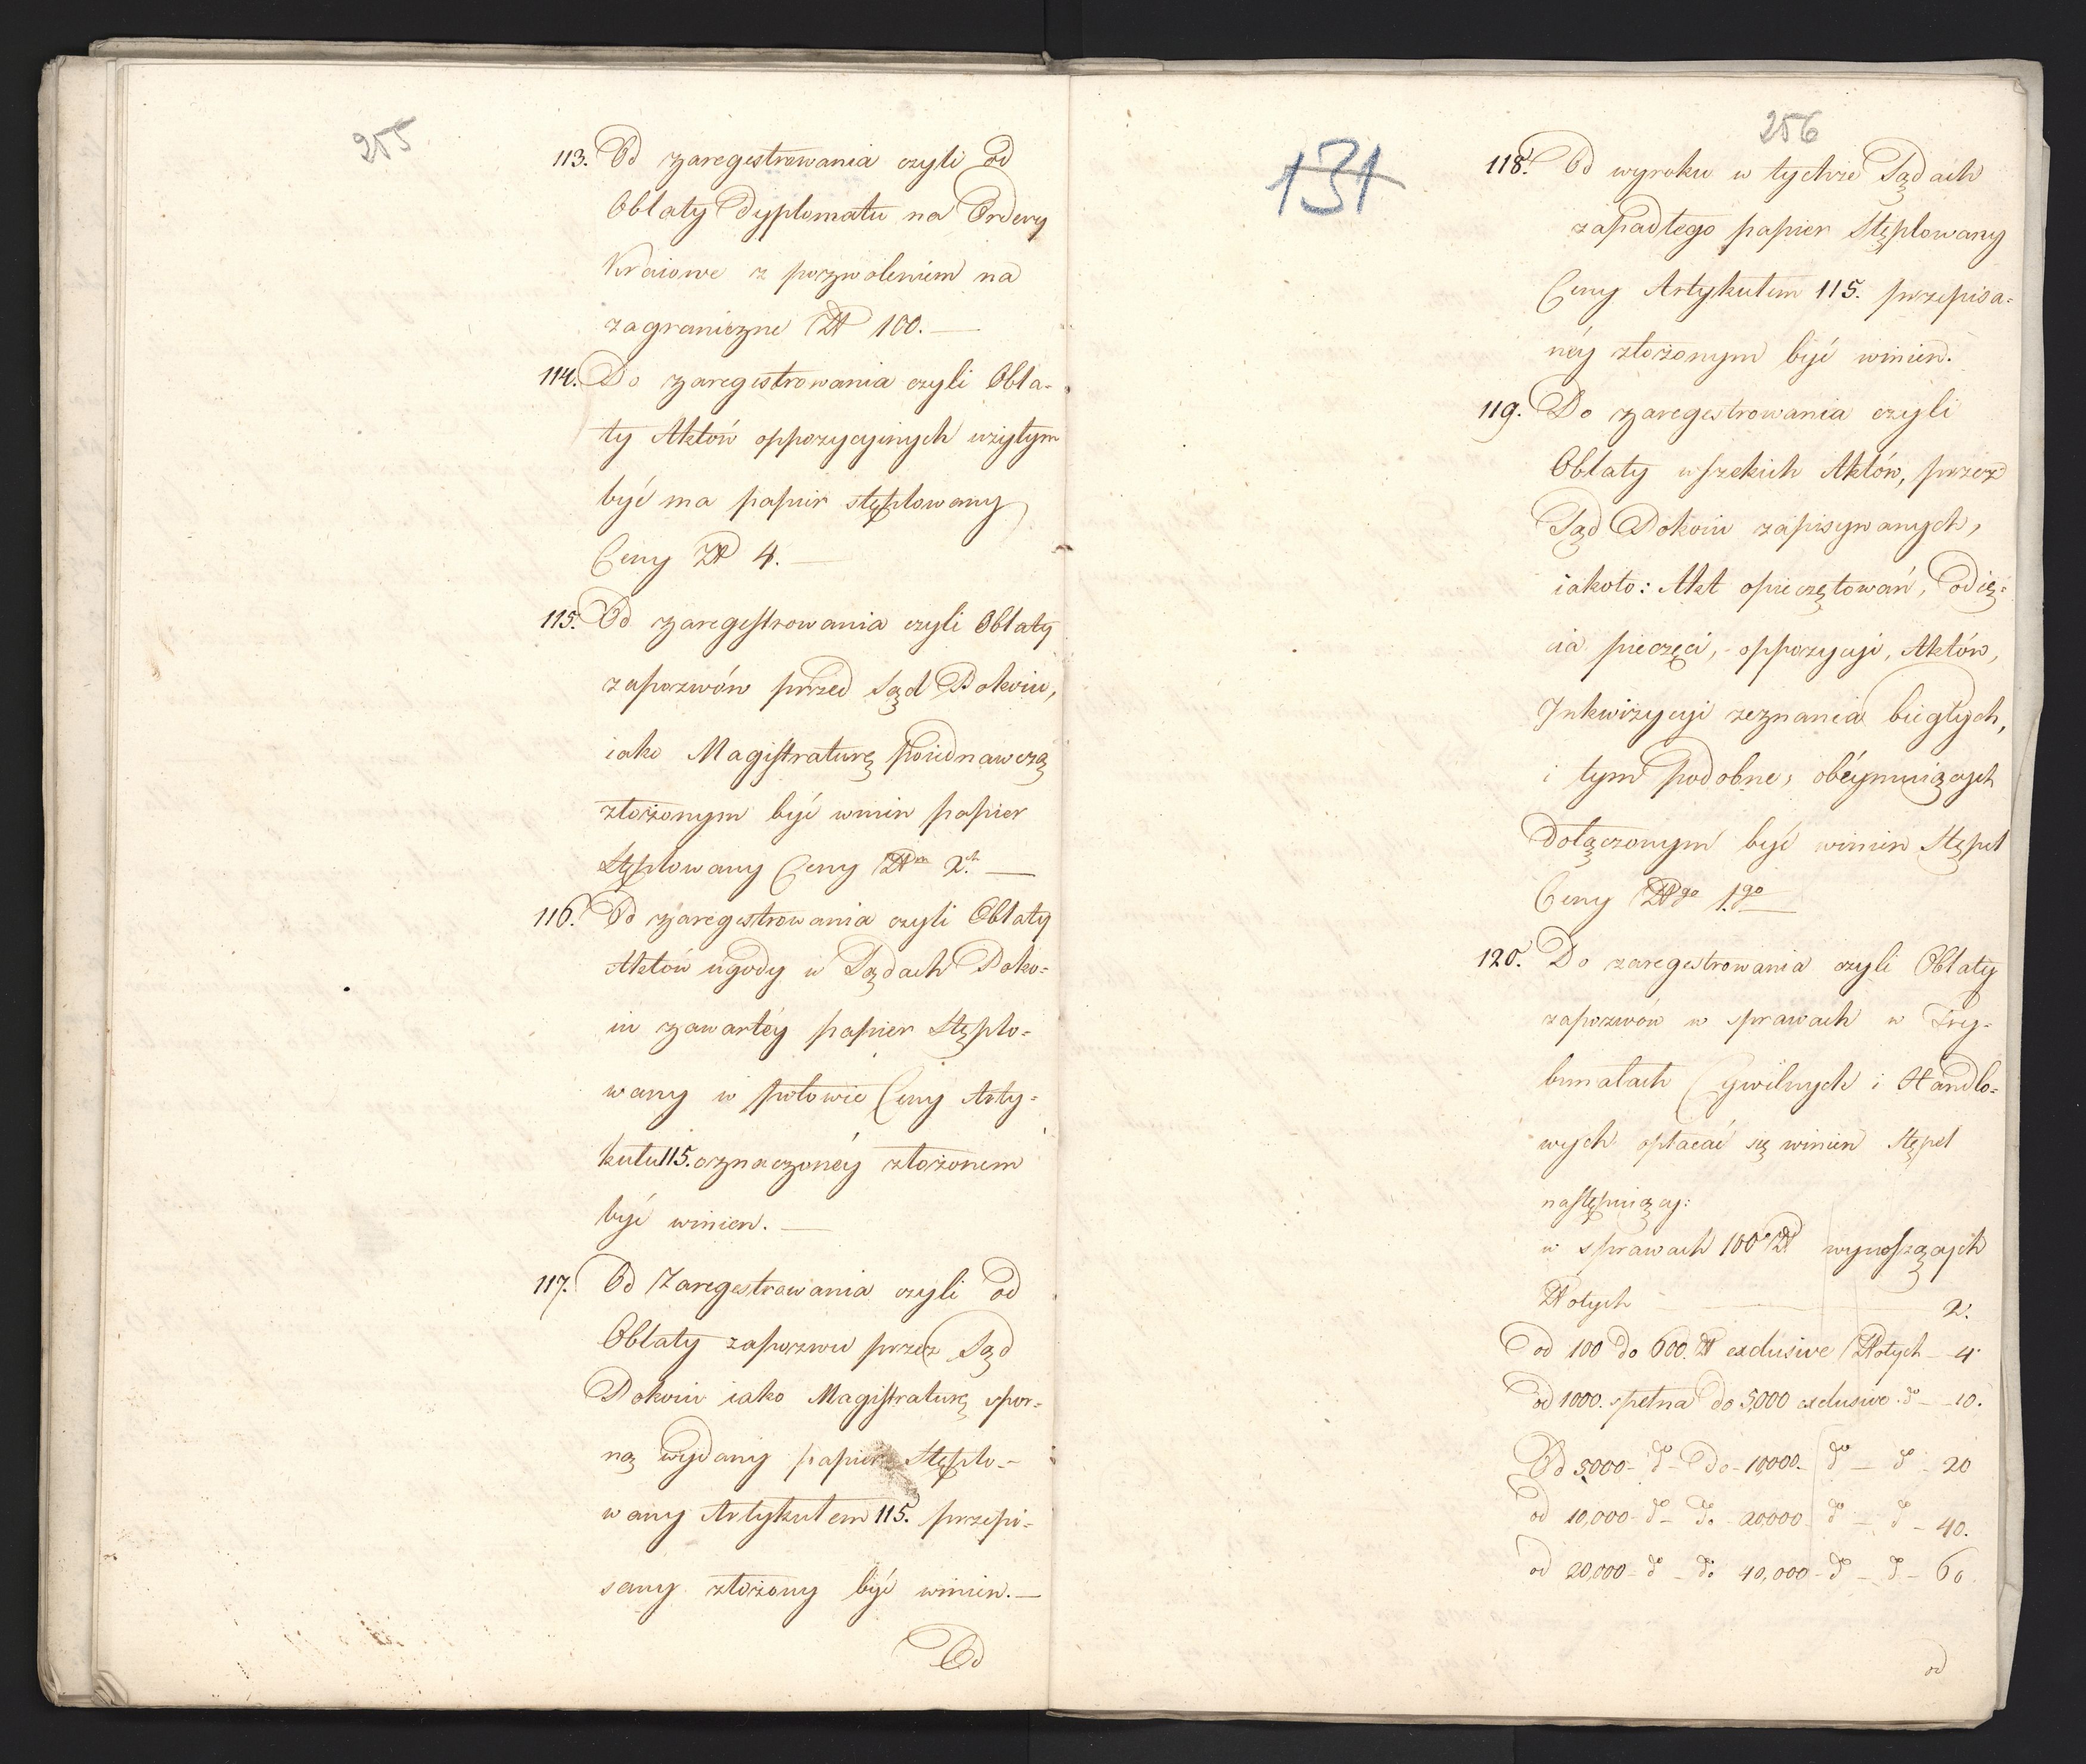 255
113. Od zaregestrowania czyli od
Oblaty Dyplomatu na Ordery
Kraiowe z pozwoleniem na
zagraniczne Zł 100. —
114. Do zaregestrowania czyli Obla-
ty Aktów oppozycyinych użytym
być ma papier stęplowany
Ceny Zł 4. —
115. Od zaregestrowania czyli Oblaty
zapozwów przed Sąd Pokoiu,
iako Magistraturę poiednawczą
złożonym być winin papier
Stęplowany Ceny Złch 2ch —
116. Od zaregestrowania czyli Oblaty
Aktów ugody w Sądach Poko-
iu zawartéy papier Stęplo-
wany w połowie Ceny Arty-
kułu 115. oznaczonéy złożonem
być winien. —
117. Od Zaregestrowania czyli od
Oblaty zapozwu przez Sąd
Pokoiu iako Magistraturę spor-
ną wydany papier Stęplo-
wany Artykułem 115. przepi-
sany złożony być winien. —
Od
256
131
118. Od wyroku w tychże Sądach
zapadłego papier Stęplowany
Ceny Artykułem 115. przepisa-
néy złożonym być winien.
119. Do zaregestrowania czyli
Oblaty wszekich Aktów, przez
Sąd Pokoiu zapisywanych,
iakoto: Akt opieczętowań, odię-
cia pieczęci, oppozycyi, Aktów,
Inkwizycyi zeznania biegłych,
i tym podobne, obéymuiących
dołączonym być winien Stępel
Ceny Złgo 1.go —
120. Do zaregestrowania czyli Oblaty
zapozwów w sprawach w Try-
bunałach Cywilnych i Handlo-
wych opłacać się winien Stępel
następuiący:
w sprawach 100 Zł wynoszących
Złotych — 2.
od 100 do 600. Zł exclusive Złotych — 4
od 1000. spełna do 5,000 exclusive. do — 10.
Od 5000 - do - do - 10,000 - do — do - 20
od 10,000 - do - do 20,000 do — do - 40.
od 20,000 - do - do 40,000 - do - do - 60
od